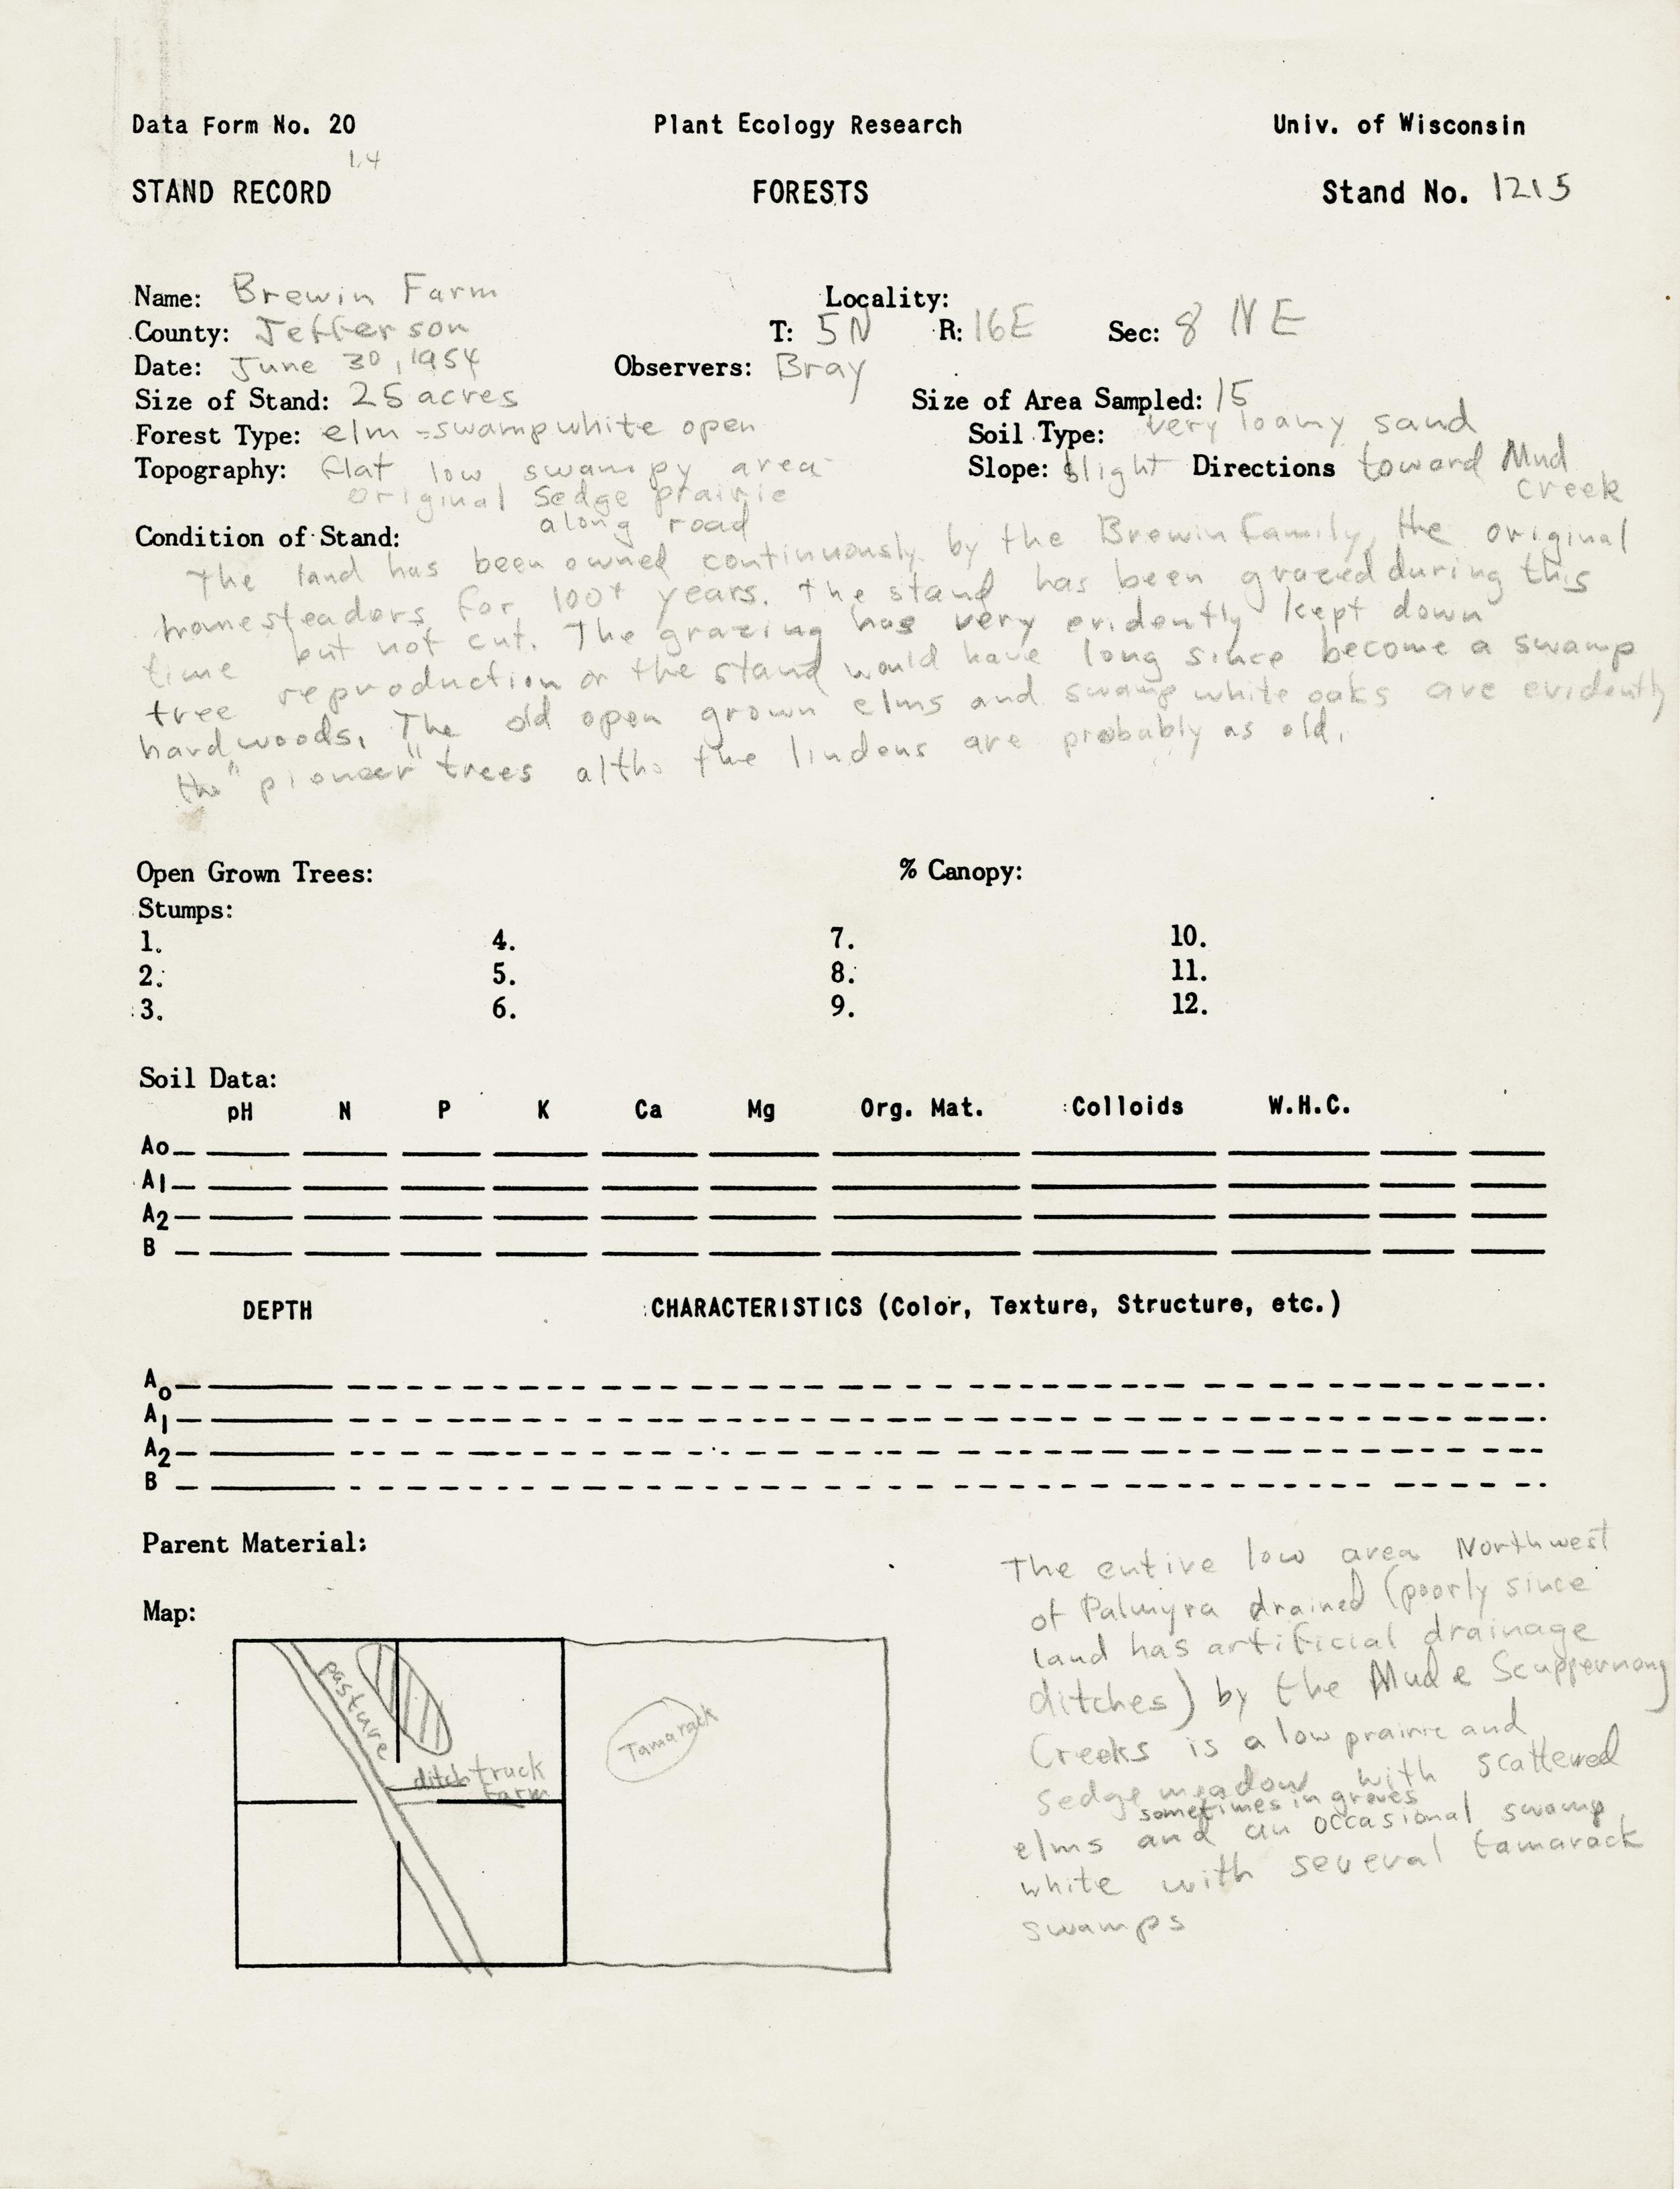 Data Form No. 20 Plant Ecology Research Univ. of Wisconsin
1.4
STAND RECORD FORESTS Stand No. 1215
Name: Brewin Farm Locality:
County: Jefferson T: 5N R: 16E Sec: 8 NE
Date: June 30, 1954 Observers: Bray
Size of Stand: 25 acres Size of Area Sampled: 15
Forest Type: elm - swamp white open Soil Type: very loamy sand
Topography: flat low swampy area Slope: slight Directions toward Mud
original sedge prairie creek
along road
Condition of Stand:
The land has been owned continuously by the Brewin Family, the original
homesteaders for 100+ years. The stand has been grazed during this
time but not cut. The grazing has very evidently kept down
tree reproduction or the stand would have long since become a swamp
hardwoods. The old open grown elms and swamp white oaks are evidently
the "pioneer" trees altho the lindens are probably as old.
Open Grown Trees: % Canopy:
Stumps:
1. 4. 7. 10.
2. 5. 8. 11.
3. 6. 9. 12.
Soil Data:
pH N P K Ca Mg Org. Mat. Colloids W.H.C.
Ao
A1
A2
B
DEPTH CHARACTERISTICS (Color, Texture, Structure, etc.)
Ao
A1
A2
B
Parent Material:
Map:
pasture
ditch truck
farm
Tamarack
The entire low area Northwest
of Palmyra drained (poorly since
land has artificial drainage
ditches) by the Mud & Scuppernong
Creeks is a low prairie and
sedge meadow with scattered
sometimes in groves
elms and an occasional swamp
white with several tamarack
swamps